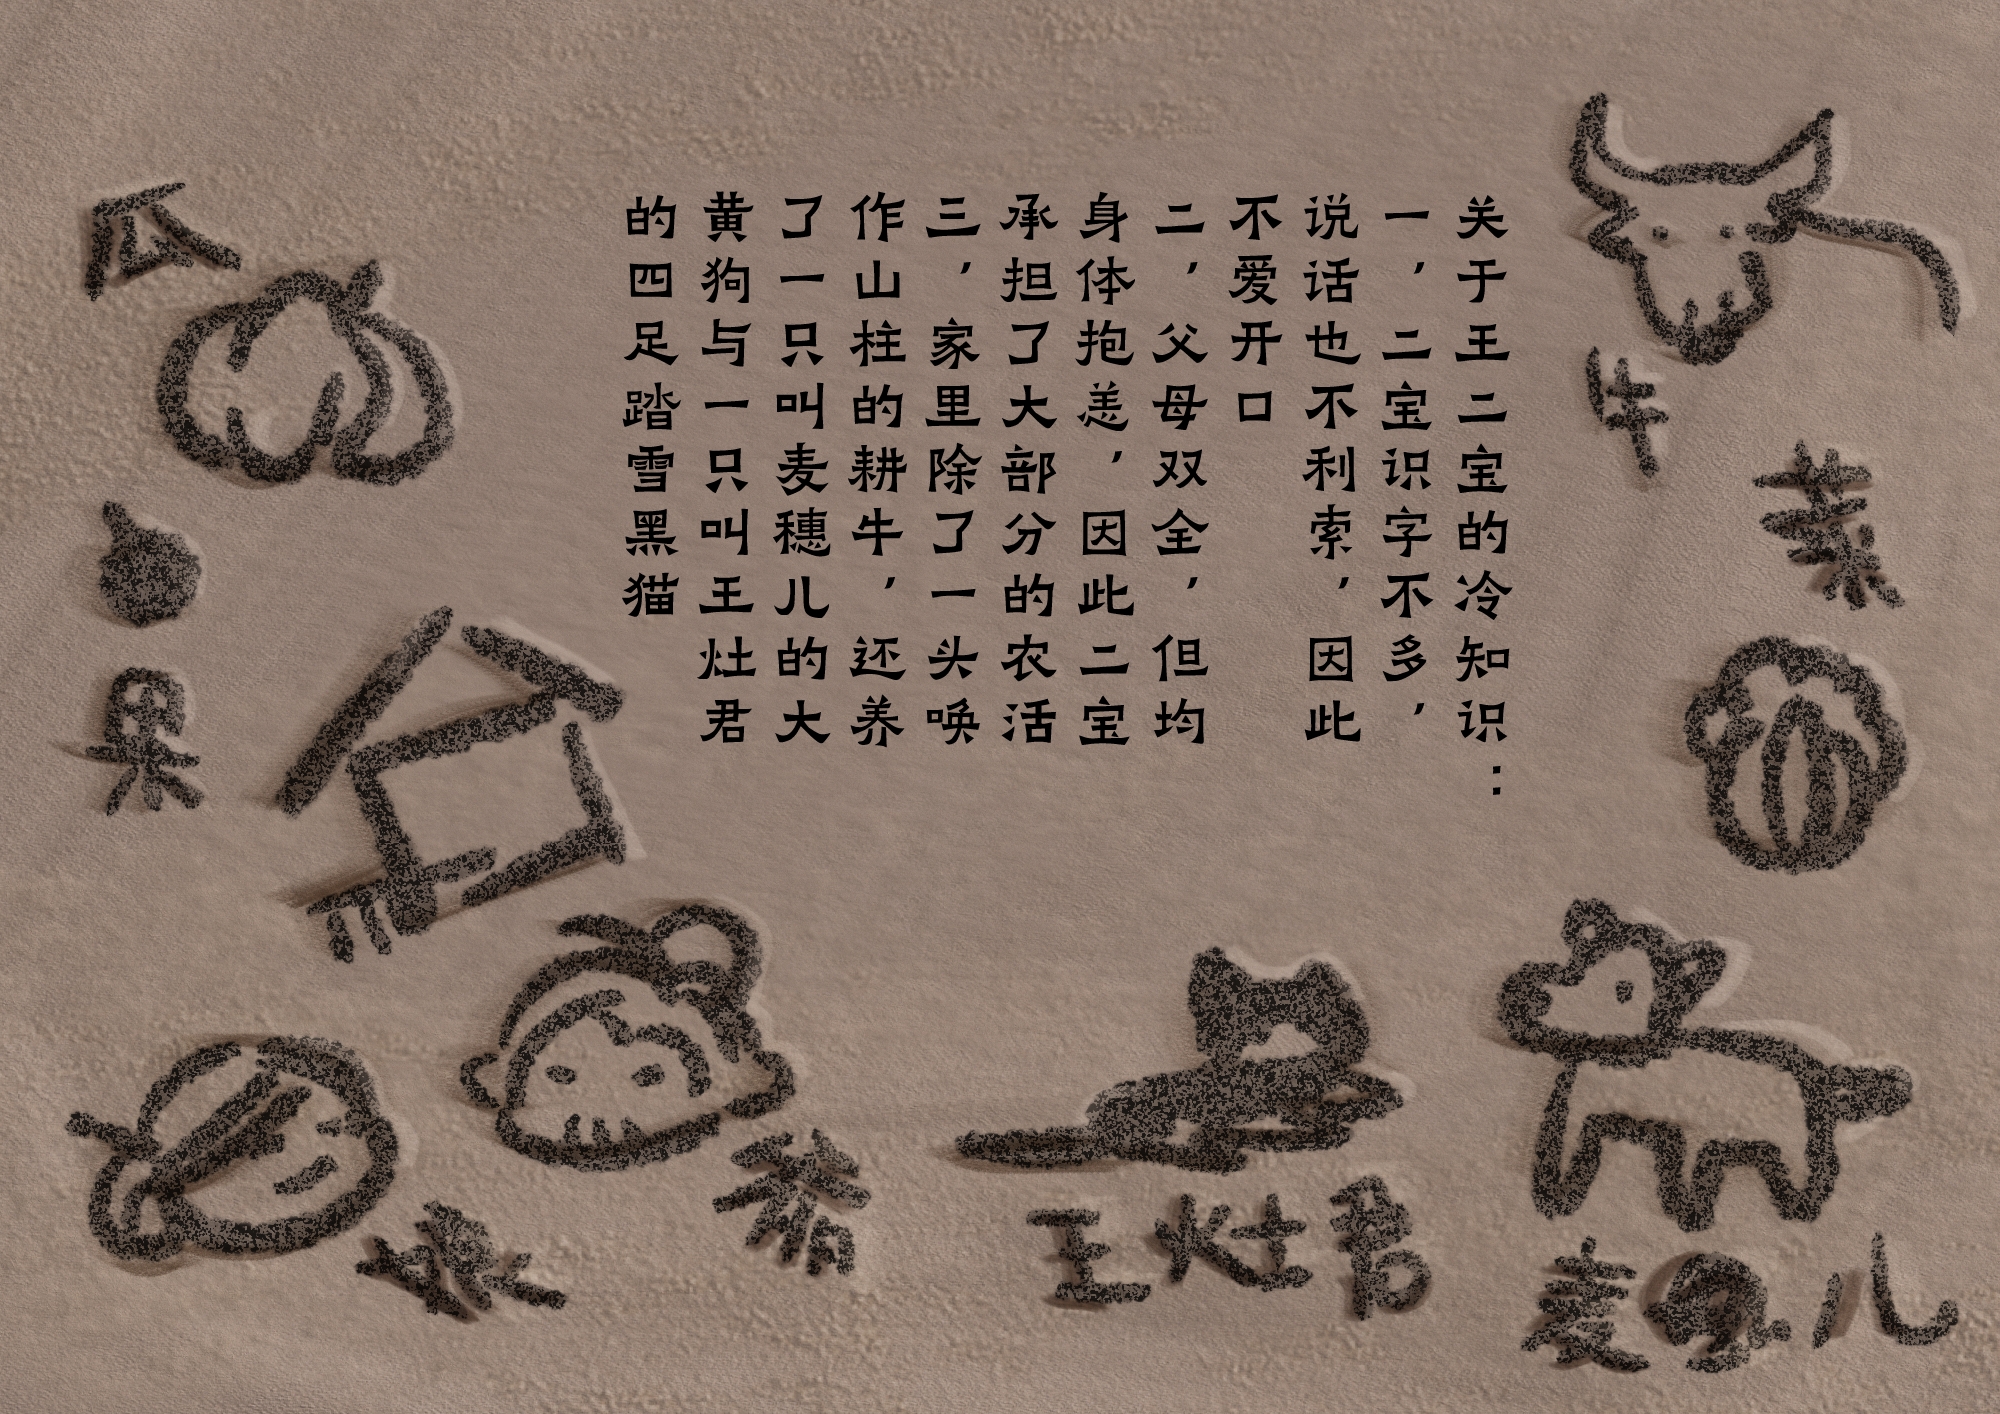 关于王二宝的冷知识：
一，二宝识字不多，
说话也不利索，因此
不爱开口
二，父母双全，但均
身体抱恙，因此二宝
承担了大部分的农活
三，家里除了一头唤
作山柱的耕牛，还养
了一只叫麦穗儿的大
黄狗与一只叫王灶君
的四足踏雪黑猫
牛
菜
瓜
果
娘
爹
王灶君
麦
儿